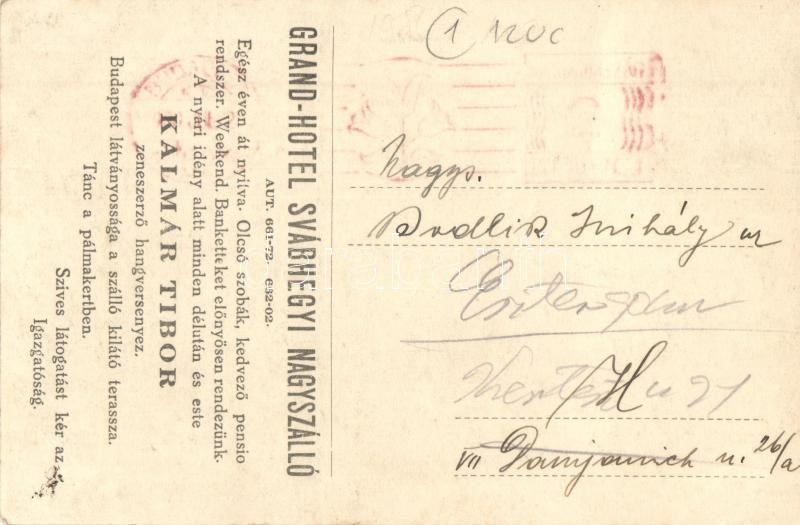 GRAND-HOTEL SVÁBHEGYI NAGYSZÁLLÓ
AUT. 661-72. 682-02.
Egész éven át nyitva. Olcsó szobák, kedvező pensio
rendszer. Weekend. Banketteket előnyösen rendezünk.
A nyári idény alatt minden délután és este
KALMÁR TIBOR
zeneszerző hangversenyez.
Budapest látványossága a szálló kilátó terassza.
Tánc a pálmakertben.
Szives látogatást kér az
Igazgatóság.
1
Nagys.
Mihály ur
H
VII Damjanich u. 26/a